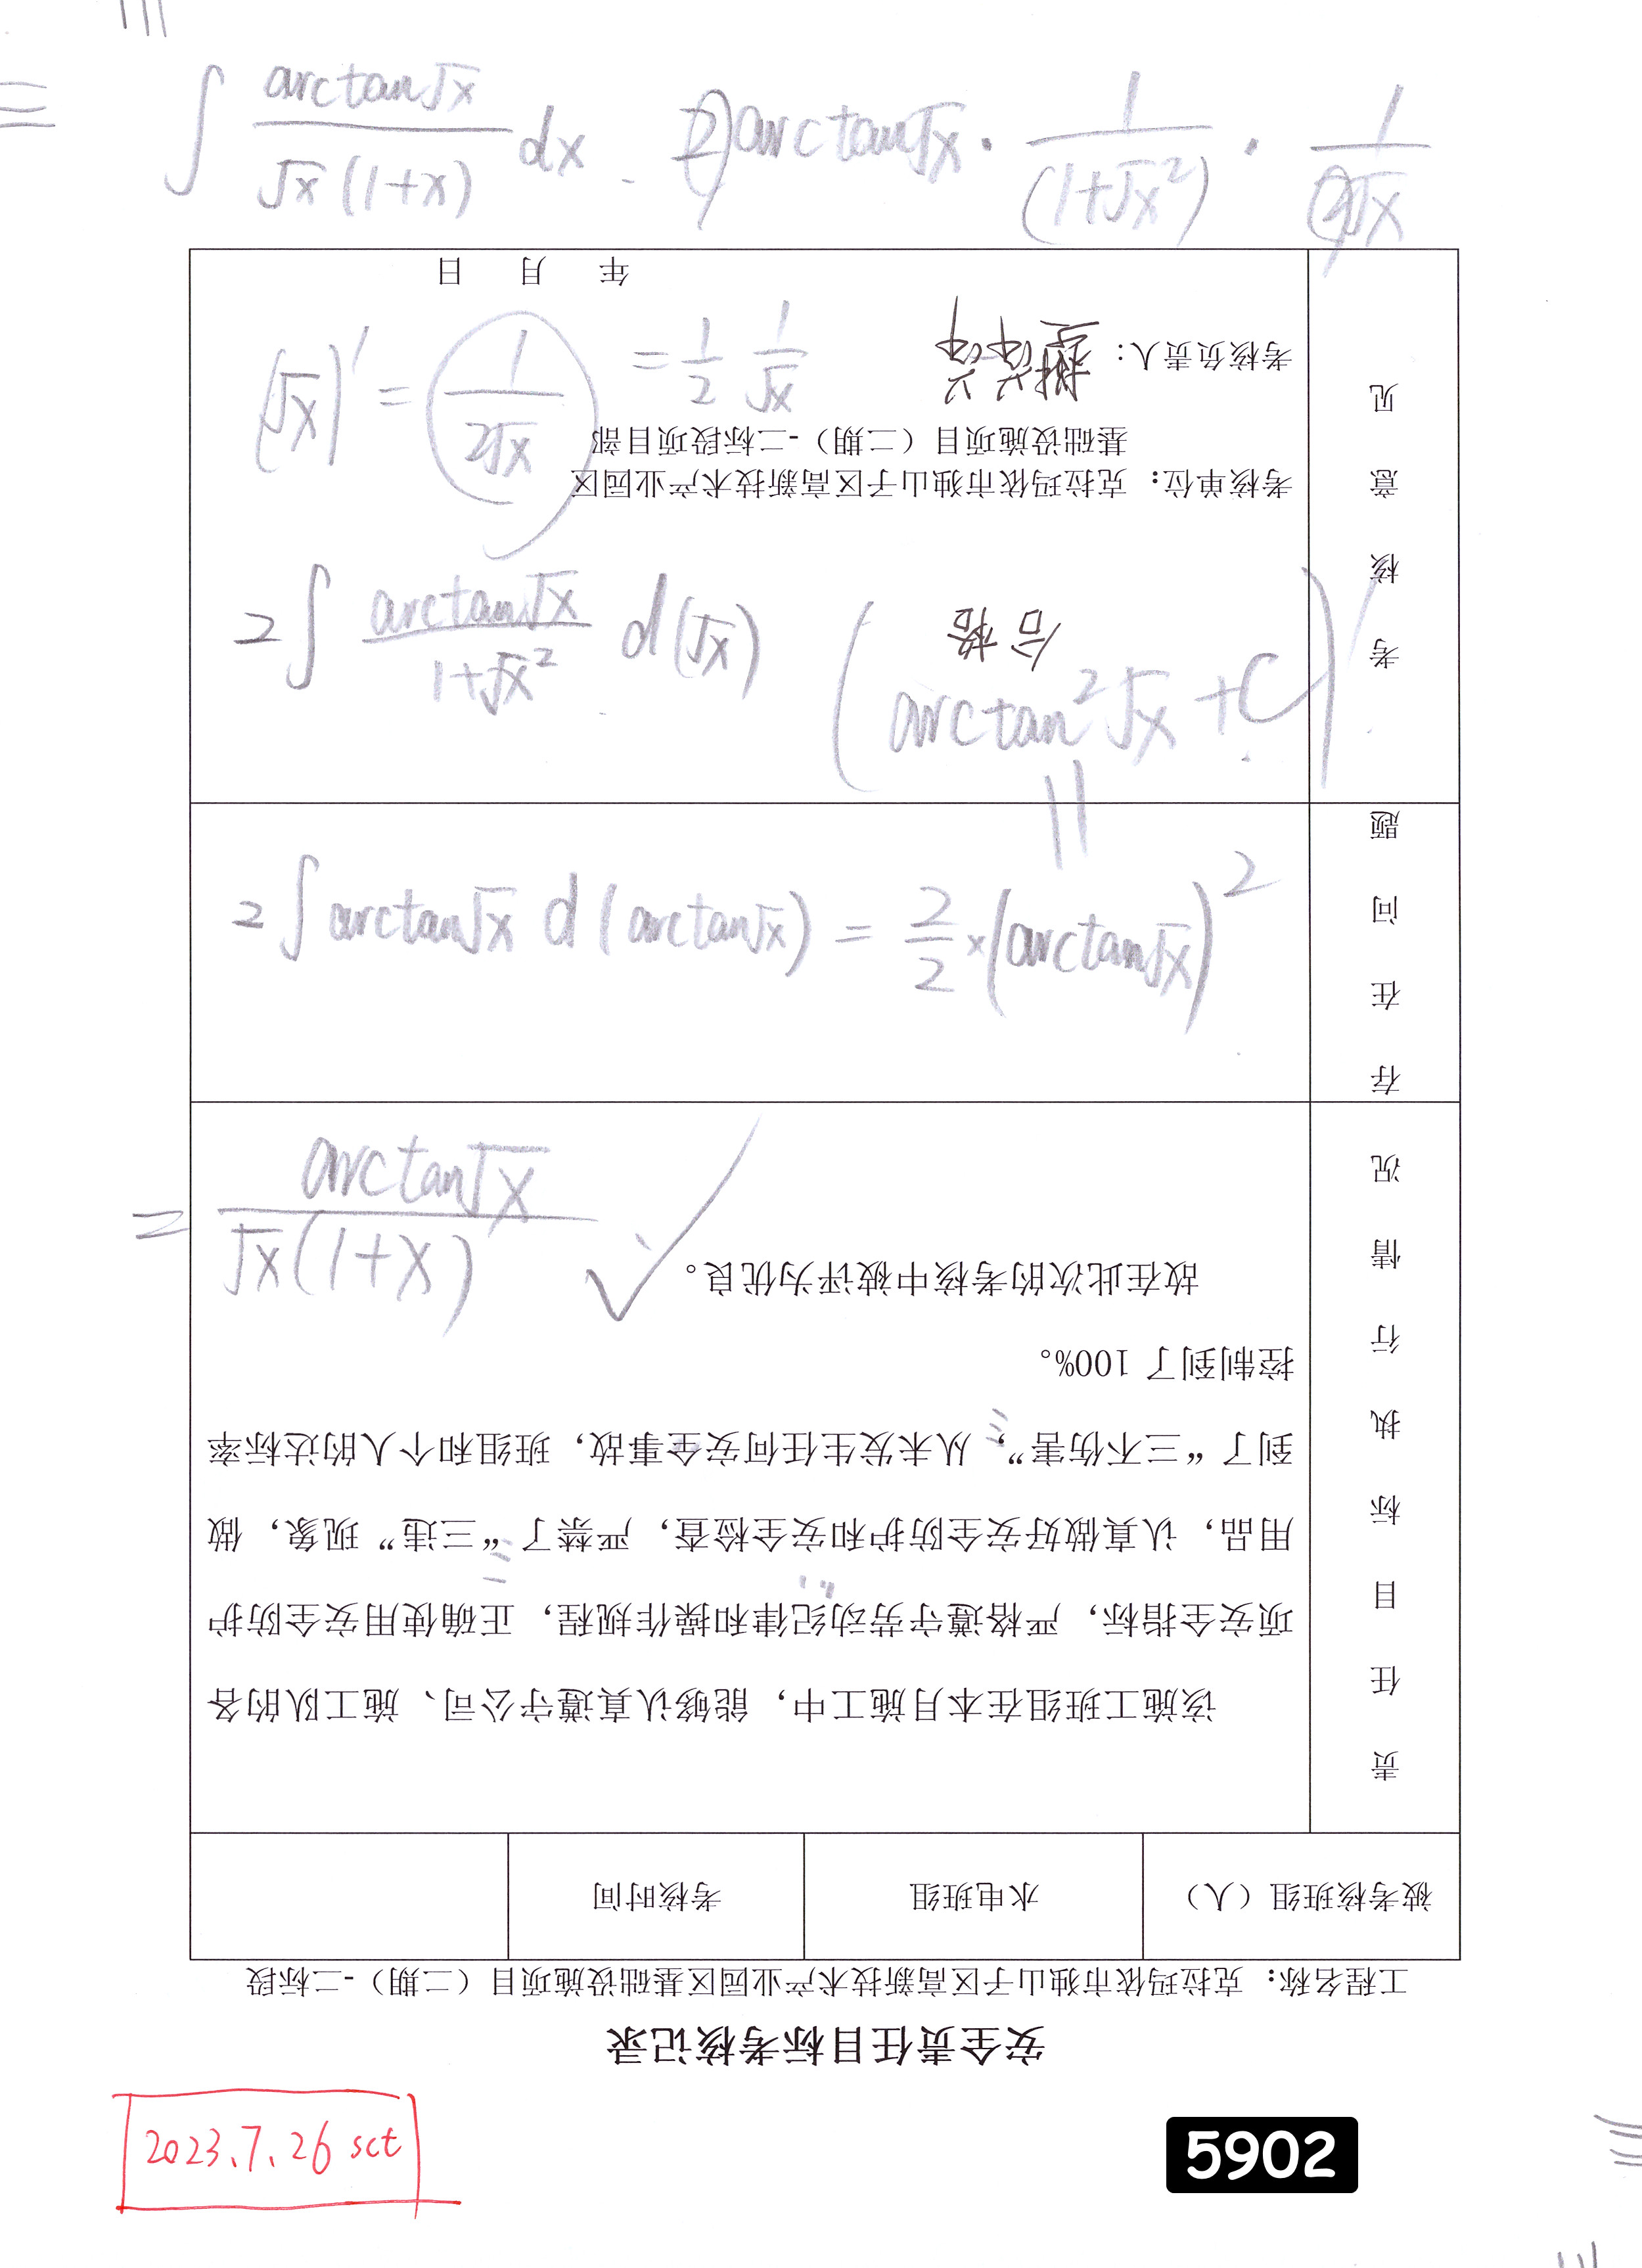 ∫ arctan√x / √x(1+x) dx 2 arctan√x · 1/(1+√x²) · 1/2√x
(√x)′ = 1/2√x = 1/2 1/√x
2∫ arctan√x / 1+√x² d(√x)
(arctan²√x + C)′
=
2∫ arctan√x d(arctan√x) = 2/2 × (arctan√x)²
= arctan√x / √x(1+x) ✓
2023.7.26 sct
5902
安全责任目标考核记录
工程名称：克拉玛依市独山子区高新技术产业园区基础设施项目（二期）-二标段
被考核班组（人） 水电班组 考核时间
责任目标执行情况
该施工班组在本月施工中，能够认真遵守公司、施工队的各
项安全指标，严格遵守劳动纪律和操作规程，正确使用安全防护
用品，认真做好安全防护和安全检查，严禁了“三违”现象，做
到了“三不伤害”，从未发生任何安全事故，班组和个人的达标率
控制到了 100%。
故在此次的考核中被评为优良。
存在问题
考核意见
合格
考核单位：克拉玛依市独山子区高新技术产业园区
基础设施项目（二期）-二标段项目部
考核负责人：
年 月 日